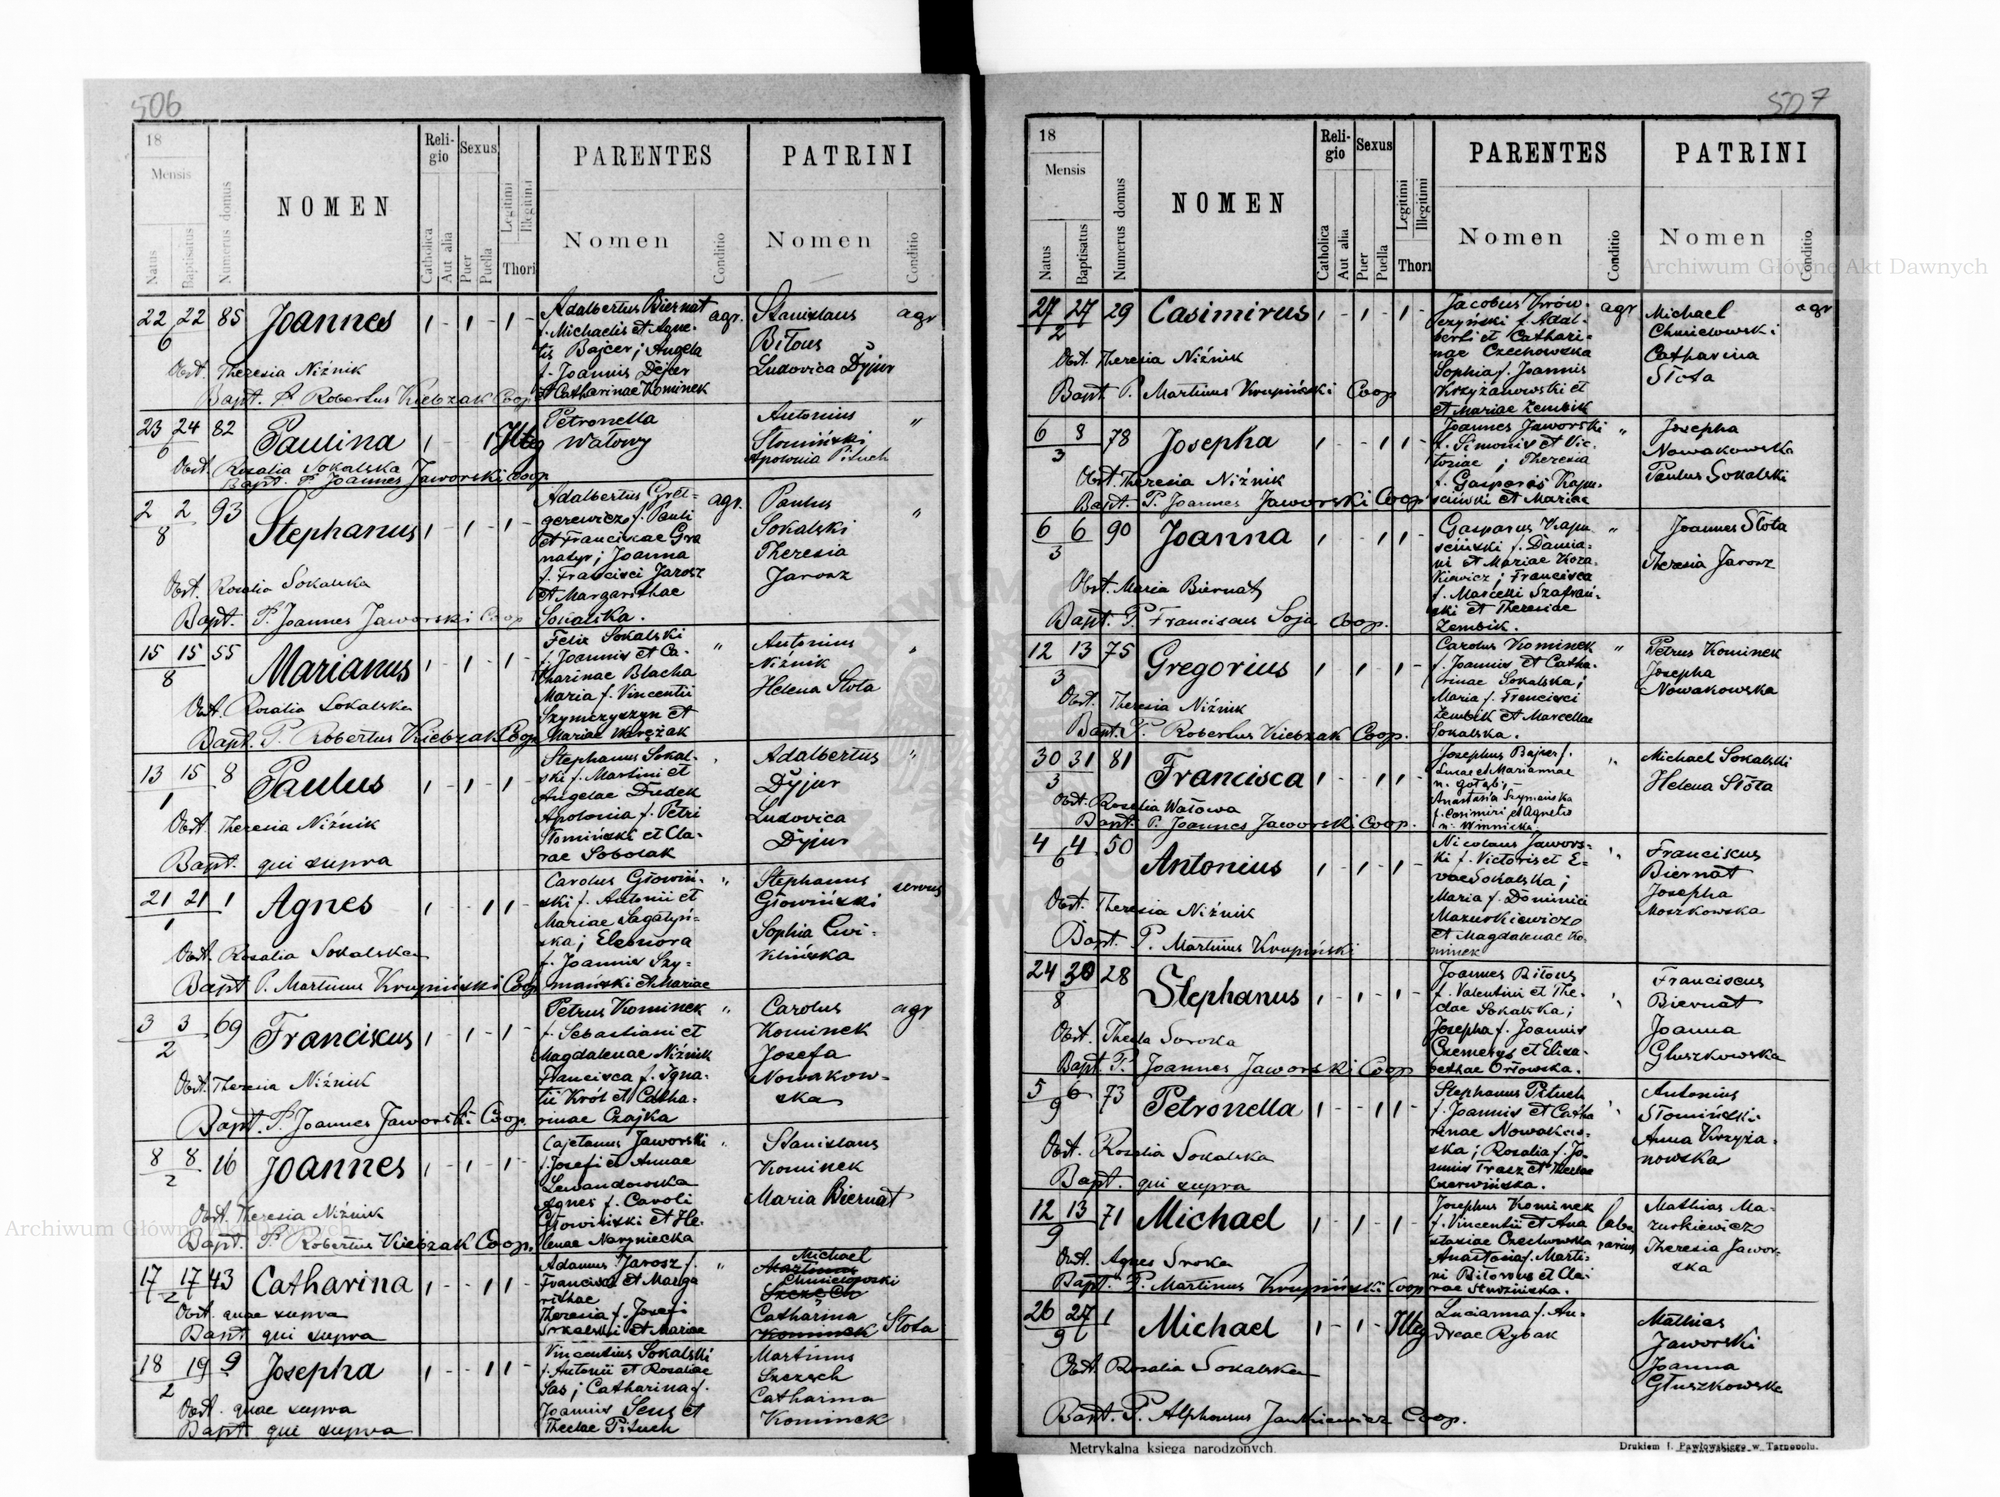 506
18
Mensis
Natus
Baptisatus
Numerus domus
NOMEN
Religio
Catholica
Aut alia
Sexus
Puer
Puella
Legitimi
Illegitimi
Thori
PARENTES
Nomen
Conditio
PATRINI
Nomen
Conditio
22 22 85 Joannes 1 - 1 - 1 -
6
Obst. Theresia Niźnik
Bapt. P. Robertus Kiebzak Coop
Adalbertus Biernat agr.
f. Michaelis et Agne-
tis Bajcer; Angela
f. Joannis Dejcer
et Catharinae Kominek
Stanislaus agr
Bitous
Ludovica Dyjur
23 24 82 Paulina 1 - - 1 Illeg
6
Obst. Rosalia Sokalska
Bapt. P. Joannes Jaworski Coop
Petronella
Watowy
Antonius "
Słomiński
Apolonia Pituch
2 2 93 Stephanus 1 - 1 - 1 -
8
Obst. Rosalia Sokalska
Bapt. P. Joannes Jaworski Coop
Adalbertus agr.
f. Pauli
et Franciscae Gra
natyr; Joanna
f. Francisci Jarosz
et Margarithae
Sokalska.
Paulus "
Sokalski
Theresia
Jarosz
15 15 55 Marianus 1 - 1 - 1 -
8
Obst. Rosalia Sokalska
Bapt. P. Robertus Kiebzak Coop
Felix Sokalski "
f. Joannis et Ca-
tharinae Blacha
Maria f. Vincentii
Szymczyszyn et
Mariae Waręzak
Antonius "
Niźnik
Helena Słota
13 15 8 Paulus 1 - 1 - 1 -
1
Obst. Theresia Niźnik
Bapt. qui supra
Stephanus Sokal-
ski f. Martini et
Angelae Dudek
Apolonia f. Petri
Słomiński et Cla-
rae Sobolak
Adalbertus "
Dyjur
Ludovica
Dyjur
21 21 1 Agnes 1 - - 1 1 -
1
Obst. Rosalia Sokalska
Bapt P. Martinus Krupiński Coop
Carolus Głowiń- "
ski f. Antonii et
Mariae Sagatyń-
ska; Eleonora
f. Joannis Szy-
mański et Mariae
Stephanus servus
Głowiński
Sophia Cwi-
klińska
3 3 69 Franciscus 1 - 1 - 1 -
2
Obst. Theresia Niźnik
Bapt. P. Joannes Jaworski Coop.
Petrus Kominek "
f. Sebastiani et
Magdalenae Niźnik
Francisca f. Igna-
tii Król et Catha-
rinae Czajka
Carolus agr
Kominek
Josefa
Nowakow-
ska
8 8 16 Joannes 1 - 1 - 1 -
2
Obst. Theresia Niźnik
Bapt. P. Robertus Kiebzak Coop.
Cajetanus Jaworski "
f. Josefi et Annae
Lewandowska
Agnes f. Caroli
Głowiński et He-
lenae Naryniecka
Stanislaus
Kominek
Maria Biernat
17 17 43 Catharina 1 - - 1 1 -
2
Obst. quae supra
Bapt. qui supra
Adamus Jarosz f. "
Francisci et Marga
rithae
Theresia f. Josefi
Sokalski et Mariae
Michael
Martinus
Chmielowski
Catharina
Kominek Słota
18 19 9 Josepha 1 - - 1 1 -
2
Obst. quae supra
Bapt. qui supra
Vincentius Sokalski
f. Antonii et Rosaliae
Sas; Catharina f.
Joannis Sens et
Theclae Pituch
Martinus
Szczech
Catharina
Kominek
507
18
Mensis
Natus
Baptisatus
Numerus domus
NOMEN
Religio
Catholica
Aut alia
Sexus
Puer
Puella
Legitimi
Illegitimi
Thori
PARENTES
Nomen
Conditio
PATRINI
Nomen
Conditio
27 27 29 Casimirus 1 - 1 - 1 -
2
Obst. Theresia Niźnik
Bapt P. Martinus Krupiński Coop
Jacobus Krów- agr
czyński f. Adal-
berti et Cathari-
nae Czechowska
Sophia f. Joannis
Krzyżanowski et
et Mariae Zembik
Michael agr
Chmielowski
Catharina
Słota
6 8 78 Josepha 1 - - 1 1 -
3
Obst. Theresia Niźnik
Bapt. P. Joannes Jaworski Coop
Joannes Jaworski "
f. Simonis et Vic-
toriae; Theresia
f. Gasparis Kapu-
ściński et Mariae
Josepha
Nowakowska
Paulus Sokalski
6 6 90 Joanna 1 - - 1 1 -
3
Obst. Maria Biernat
Bapt. P. Franciscus Soja Coop.
Gasparus Kapu- "
ściński f. Damia-
ni et Mariae Koza-
kiewicz; Francisca
f. Marcelli Szafrań-
ski et Theresiae
Zembik.
Joannes Słota
Theresia Jarosz
12 13 75 Gregorius 1 - 1 - 1 -
3
Obst. Theresia Niźnik
Bapt. P. Robertus Kiebzak Coop.
Carolus Kominek "
f. Joannis et Catha-
rinae Sokalska;
Maria f. Francisci
Zembik et Marcellae
Sokalska.
Petrus Kominek
Josepha
Nowakowska
30 31 81 Francisca 1 - - 1 1 -
3
Obst. Rosalia Watowa
Bapt. P. Joannes Jaworski Coop.
Josephus Bajcer f. "
Lucae et Mariannae
n. Gołąb;
Anastasia Szymańska
f. Casimiri et Agnetis
n. Winnicka.
Michael Sokalski
Helena Słota
4 4 50 Antonius 1 - 1 - 1 -
6
Obst. Theresia Niźnik
Bapt. P. Martinus Krupiński
Nicolaus Jawors- "
ki f. Victoris et E-
vae Sokalska;
Maria f. Dominici
Mazurkiewicz
et Magdalenae Ko-
minek
Franciscus
Biernat
Josepha
Moszkowska
24 30 28 Stephanus 1 - 1 - 1 -
8
Obst. Thecla Soroka
Bapt. P. Joannes Jaworski Coop
Joannes Bitous
f. Valentini et The- "
clae Sokalska;
Josepha f. Joannis
Czemerys et Elisa-
bethae Orłowska.
Franciscus
Biernat
Joanna
Głuszkowska
5 6 73 Petronella 1 - - 1 1 -
9
Obst. Rosalia Sokalska
Bapt. qui supra
Stephanus Pituch
f. Joannis et Catha "
rinae Nowakow-
ska; Rosalia f. Jo-
annis Trasz et Theclae
Czerwińska.
Antonius
Słomiński
Anna Krzyża-
nowska
12 13 71 Michael 1 - 1 - 1 -
9
Obst. Agnes Sroka
Bapt. P. Martinus Krupiński Coop
Josephus Kominek
f. Vincentii et Ana labo
stasiae Czechowska rarius
Anastasia f. Marti-
ni Bitowus et Cla-
rae
Mathias Ma-
zurkiewicz
Theresia Jawor-
ska
26 27 1 Michael 1 - 1 - Illeg
9
Obst. Rosalia Sokalska
Bapt. P. Alphonsus Jankiewicz Coop.
Lucianna f. An-
dreae Rybak
Mathias
Jaworski
Joanna
Głuszkowska
Metrykalna księga narodzonych.
Drukiem I. Pawłowskiego w Tarnopolu.
Archiwum Główne Akt Dawnych
Archiwum Główne Akt Dawnych